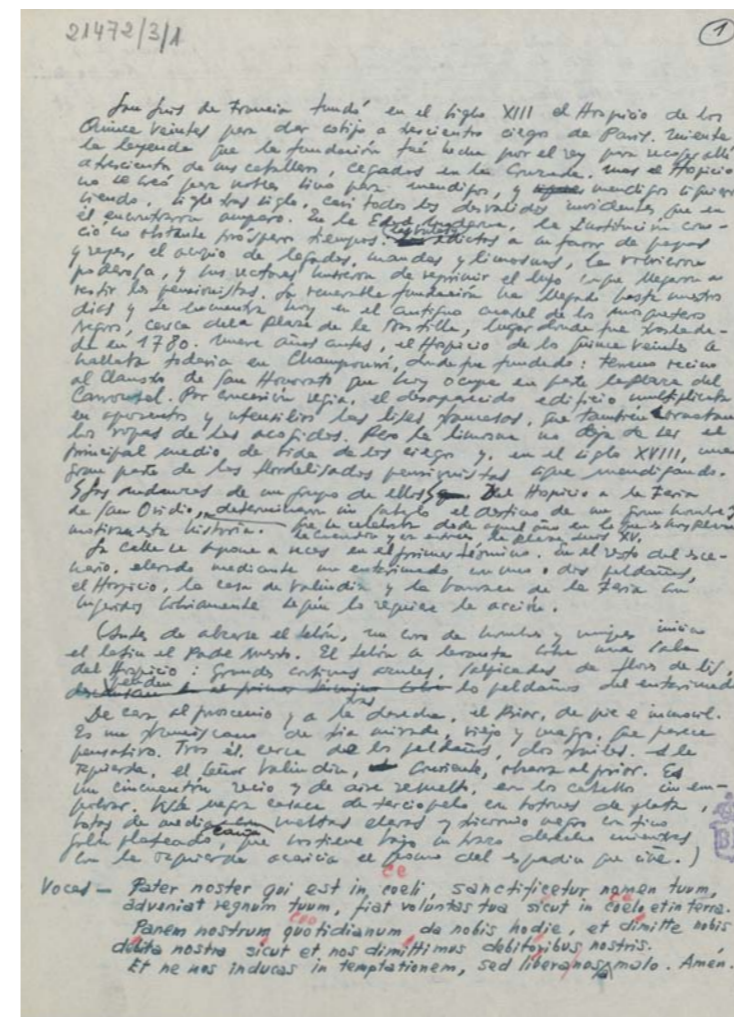 21472/3/1
1
San Luis de Francia fundó en el siglo XIII el Hospicio de los
Quince Veintes para dar cobijo a trescientos ciegos de París. Miente
la leyenda que la fundación fué hecha por el rey para recoger allí
a trescientos de sus caballeros, cegados en la Cruzada. Mas el Hospicio
no se creó para nobles sino para mendigos, y mendigos siguieron
siendo, siglo tras siglo, casi todos los desvalidos invidentes que en
él encontraron amparo. En la Edad Moderna, la Institución cono-
ció no obstante prósperos tiempos. adictos a su favor de papas
y reyes, el acopio de legados, mandas y limosnas, la volvieron
poderosa, y sus rectores hubieron de reprimir el lujo con que llegaron a
vestir los pensionistas. La venerable fundación ha llegado hasta nuestros
días y se encuentra hoy en el antiguo cuartel de los mosqueteros
negros, cerca de la Plaza de la Bastilla, lugar donde fue traslada-
da en 1780. Nueve años antes, el Hospicio de los Quince Veintes se
hallaba todavía en Champourri, donde fue fundado: terreno vecino
al Claustro de San Honorato que hoy ocupa en parte la plaza del
Carrousel. Por concesión regia, el desaparecido edificio multiplicaba
en aposentos y utensilios las lises francesas, que también ornaban
las ropas de los acogidos. Pero la limosna no deja de ser el
principal medio de vida de los ciegos y, en el siglo XVIII, una
gran parte de los flordelisados pensionistas sigue mendigando.
Las andanzas de un grupo de ellos del Hospicio a la Feria
de San Ovidio, determinaron sin saberlo el destino de un gran hombre y
motivan esta historia. que se celebraba desde aquel año en la que es hoy plaza
de la Concordia y era entonces la plaza Luis XV.
La calle se supone a veces en el primer término. En el resto del esce-
nario, elevado mediante un entarimado con uno o dos peldaños,
el Hospicio, la casa de Valindin y la barraca de la Feria son
sugeridos sobriamente según lo requiere la acción.
(Antes de alzarse el telón, un coro de hombres y mujeres inicia
el latín el Padre Nuestro. El telón se levanta sobre una sala
del Hospicio: Grandes cortinas azules, salpicadas de flores de lis,
penden los peldaños del entarimado
De cara al proscenio y a la derecha, el Prior, de pie e inmóvil.
Es un franciscano de fría mirada, viejo y magro, que parece
pensativo. Tras él, cerca de los peldaños, dos frailes. A la
izquierda, el señor Valindin, sonriente, observa al prior. Es
un cincuentón recio y de aire resuelto, con los cabellos sin em-
polvar. Viste negra casaca de terciopelo con botones de plata,
botas de media caña con vueltas claras y tricornio negro con fino
galón plateado, que sostiene bajo su brazo derecho mientras
con la izquierda acaricia el pomo del espadín que ciñe.)
Voces — Pater noster qui est in coeli, sanctificetur nomen tuum,
adveniat regnum tuum, fiat voluntas tua sicut in coelo et in terra.
Panem nostrum quotidianum da nobis hodie, et dimitte nobis
debita nostra sicut et nos dimittimus debitoribus nostris.
Et ne nos inducas in temptationem, sed libera nos a malo. Amen.